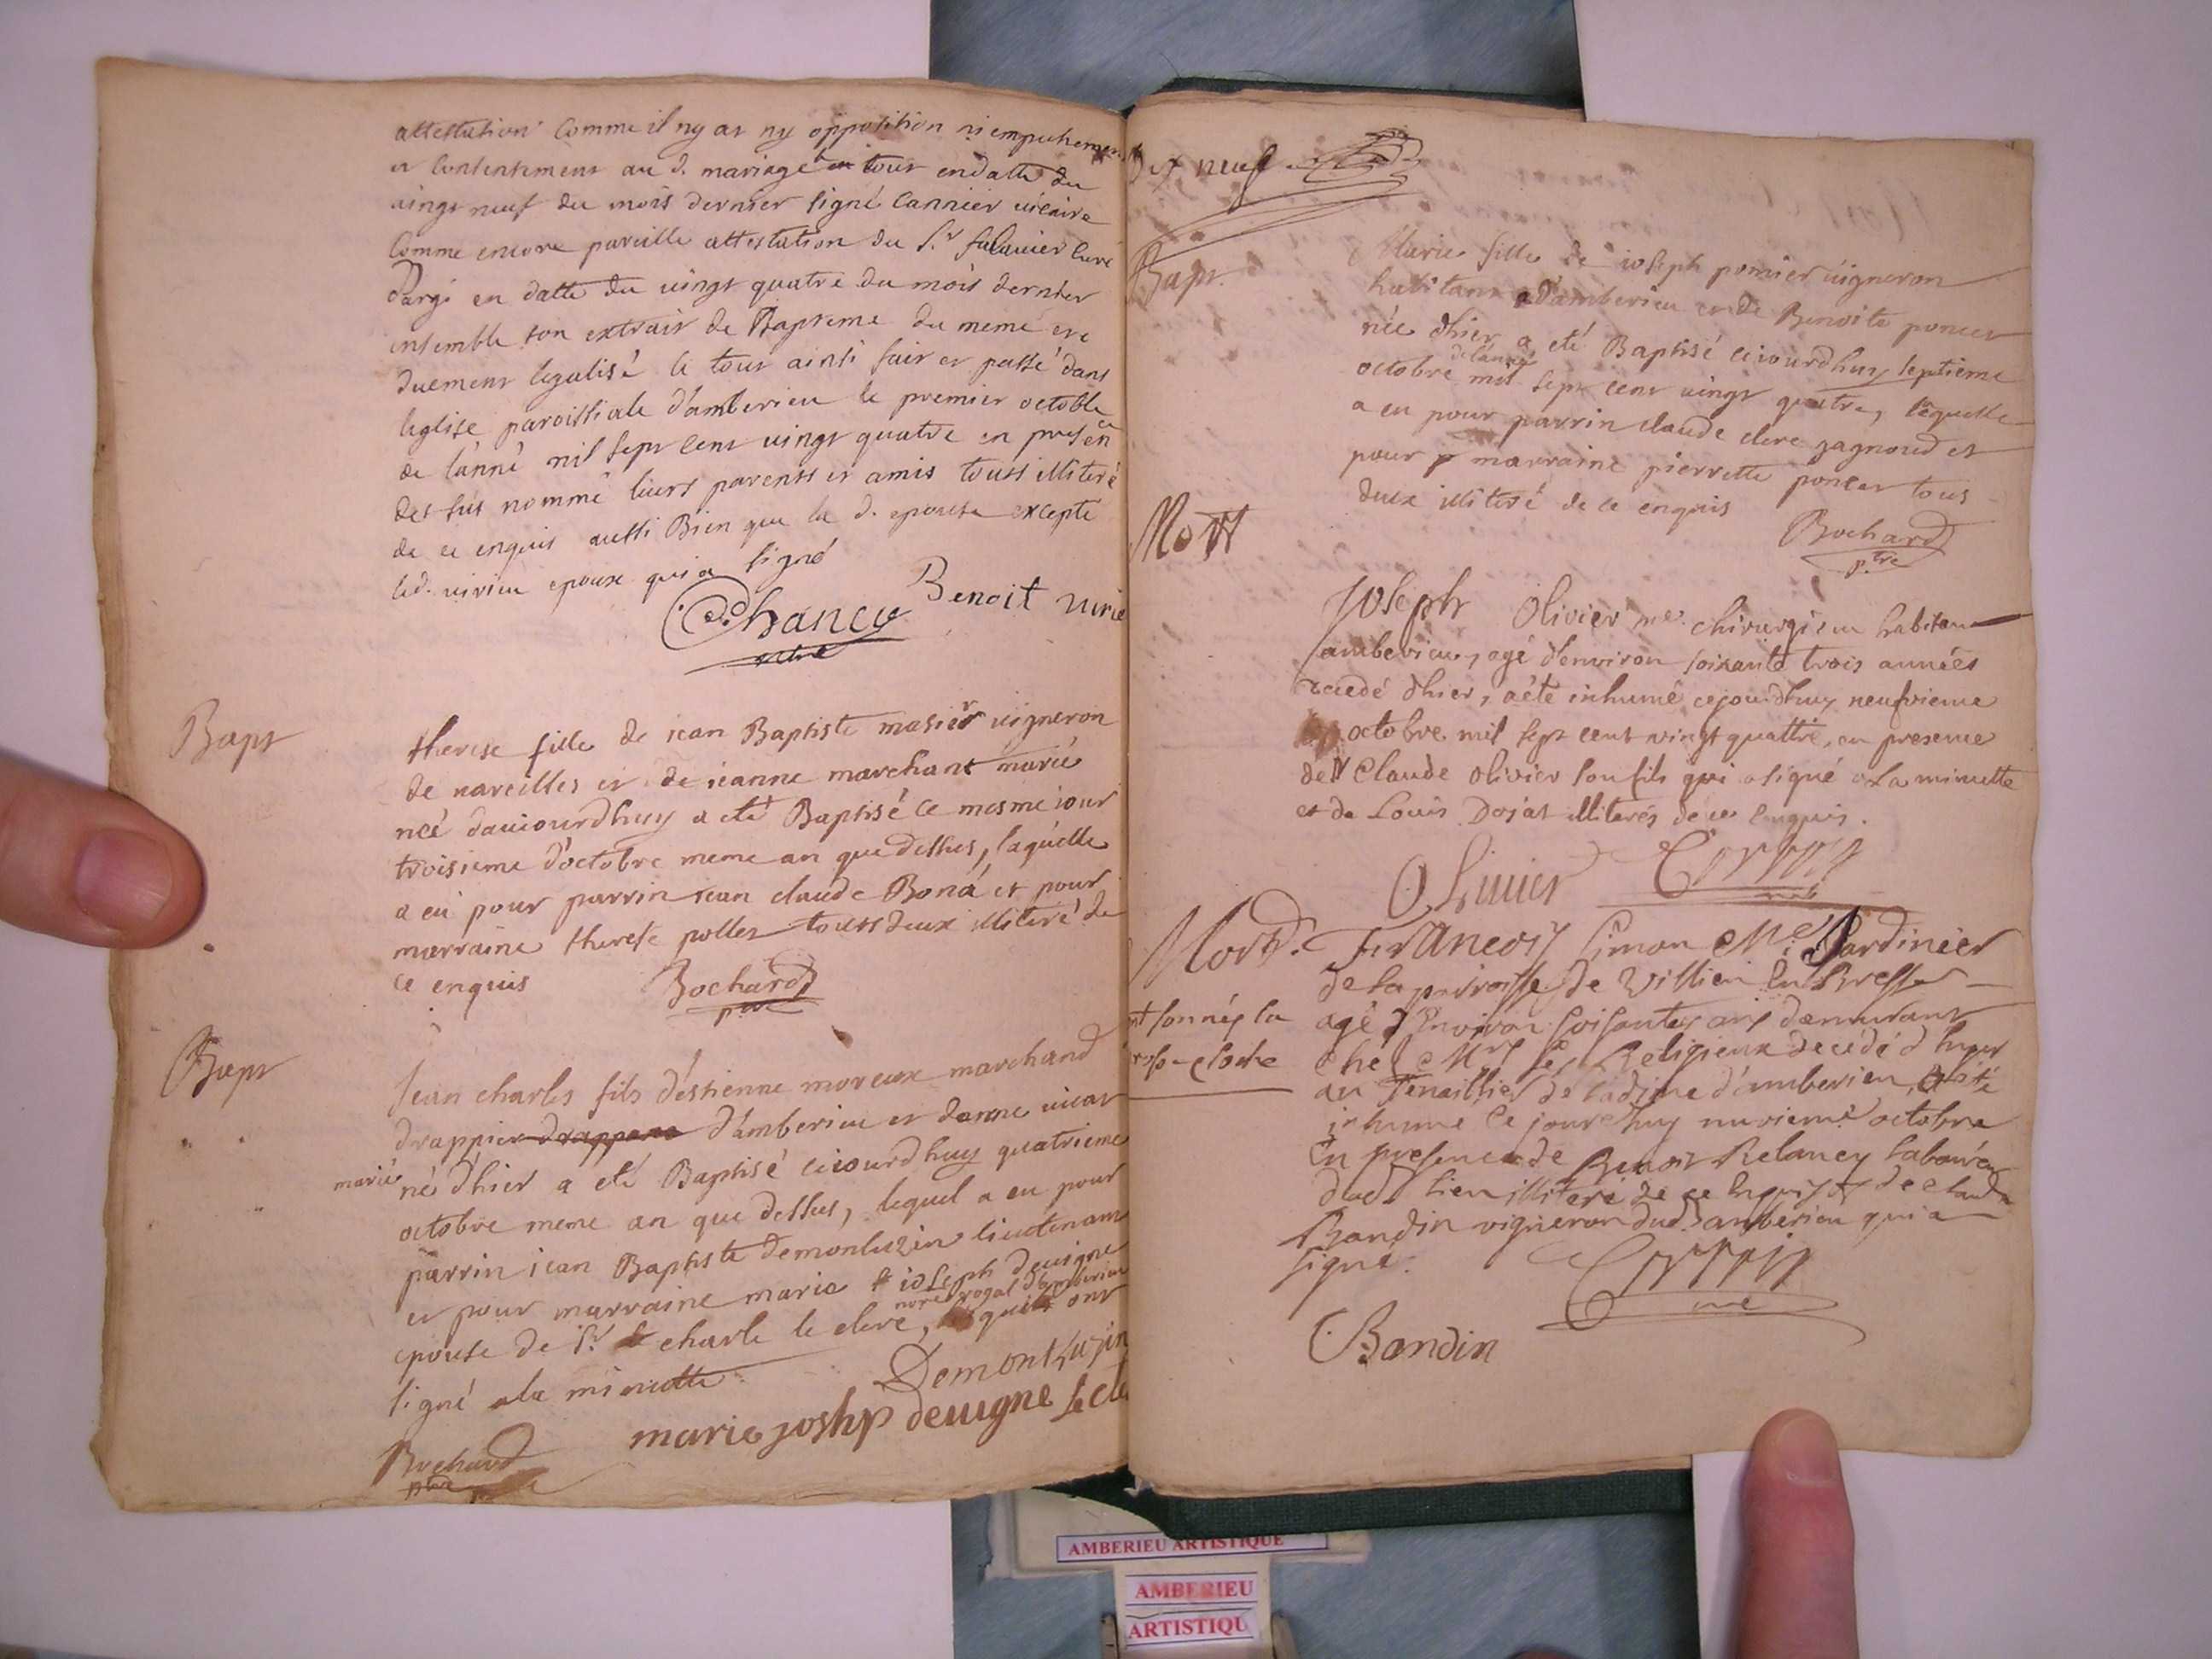 attestation comme il ny at ny opposition ni empechemen
et consentement au d. mariage tout endatte du
vingt neuf du mois dernier signé Cannier vicaire
Comme encore pareille attestation du Sr. curé
Dargi en datte du vingt quatre du mois dernier
ensemble son extrait de Bapteme du meme
duement legalisé le tout ainsi fait et passé dans
leglise paroissiale d'amberieu le premier octobre
de lanné mil sept cent vingt quatre en presence
des sus nommé leurs parents et amis touts illiteré
de ce enquis aussi Bien que la d. epouse excepté
led. virieu epoux qui a signé
Benoit virie
Chancy
Bapt
therese fille de iean Baptiste masier vigneron
de vareilles et de ieanne marchant marié
neé dauiourdhuy a eté Baptisé ce mesme iour
troisieme d'octobre meme an que dessus, laquelle
a eu pour parrin iean claude Bona et pour
marraine therese pollet touts deux illiteré de
ce enquis
Bochard
ptre
Bapt
Jean charles fils d'estienne moreux marchand
drappier drappero d'amberieu et danne
marié né d'hier a eté Baptisé ceiourdhuy quatrieme
octobre meme an que dessus, lequel a eu pour
parrin iean Baptiste demonluzin lieutenant
et pour marraine marie ioseph devigne
epouse de Sr. charle le clerc, nore royal damberieu quels ont
signé a la minutte
Demonluzin
marie joshp devigne le cle
Bochard
ptre
Dix neuf
Bapt.
Marie fille de ioseph pomier vigneron
habitant d'amberieu et de Benoite poncet
née d'hier a eté Baptisé ceiourdhuy septieme
octobre de lanné mil sept cent vingt quatre, laquelle
a eu pour parrin claude clerc gagnoud et
pour marraine pierrette poncet tous
deux illiteré de ce enquis
Bochard
ptre
Mort
Joseph Olivier me. chirurgien habitant
amberieu, agé d'environ soixante trois années
decedé d'hier, a été inhumé cejourdhuy neufvieme
octobre mil sept cent vingt quattre, en presence
de Sr Claude Olivier son fils qui a signé a la minutte
et de Louis Dojat illiterés de ce enquis.
Olivier
Mort.
François Simon Me. Jardinier
de la parroisse de Villieu en Bresse
agé d'environ soisante ans demeurant
chés Mrs les Religieux decedé d'hyer
au de la dime d'amberieu, a été
inhumé ce jourdhuy nuvieme octobre
en presence de Benoit Relancy laboureu
dud lieu illiteré de ce enquis et de claude
Bandin vigneron dud. amberieu qui a
signé.
nt sonnés la
grosse cloche
Bandin
AMBERIEU ARTISTIQUE
AMBERIEU
ARTISTIQU